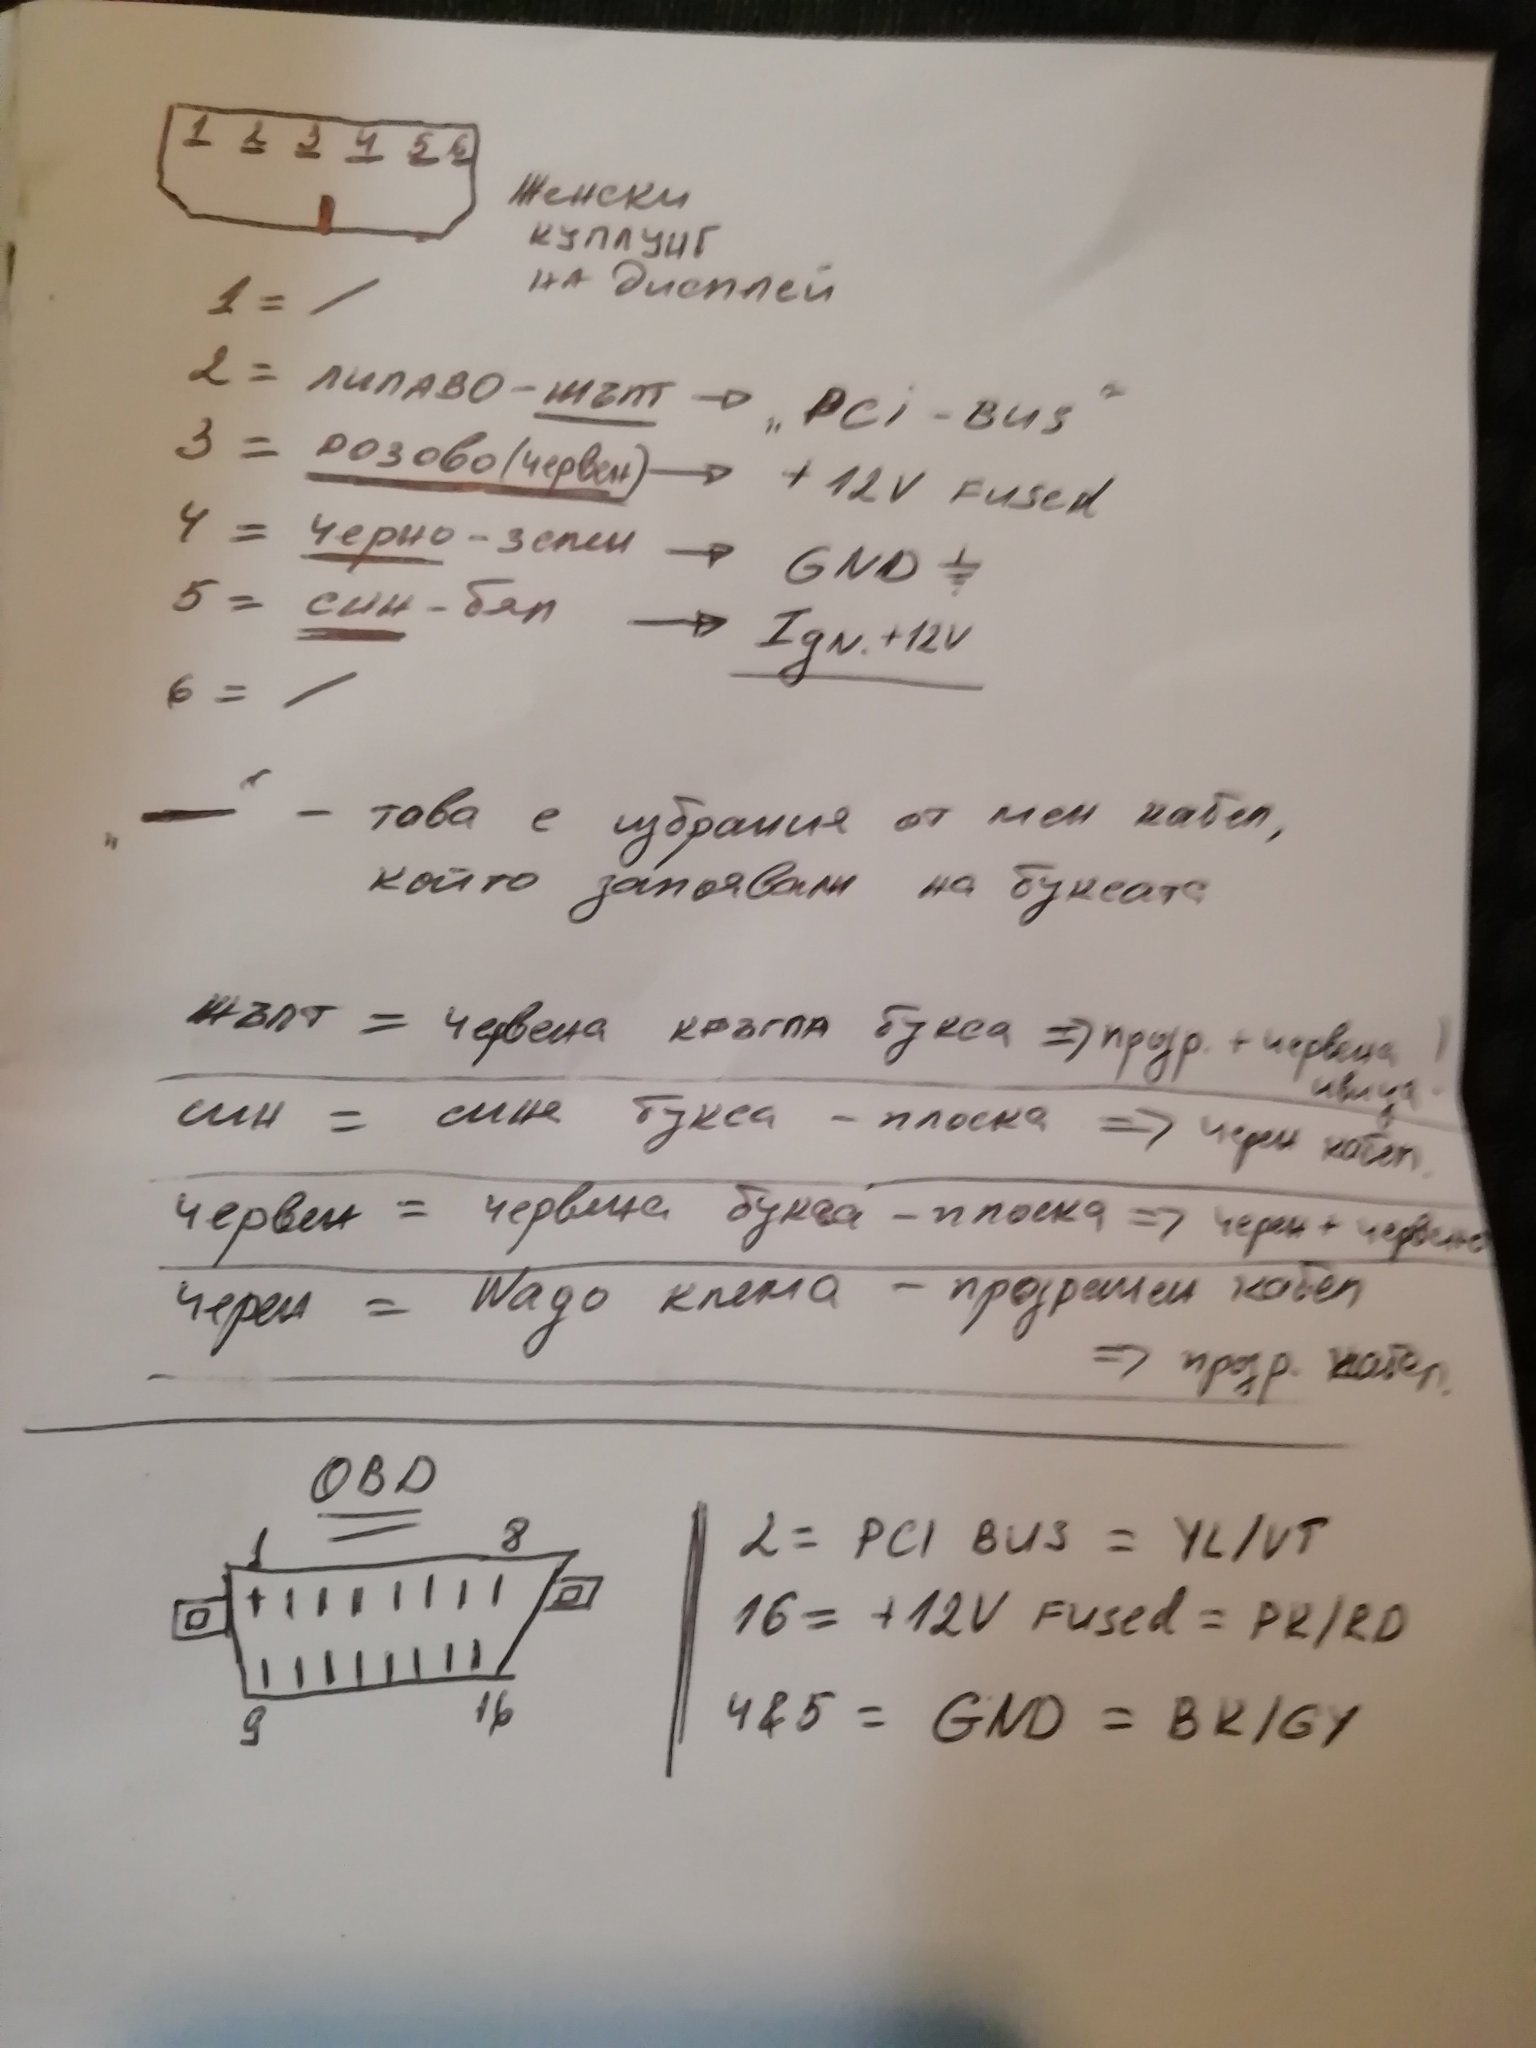 1 2 3 4 5 6
Женски
куплунг
на дисплей
1 = /
2 = лилаво - жълт → „PCi - BUS"
3 = розово (червен) → + 12V Fused
4 = черно - зелен → GND
5 = син - бял → Ign. +12V
6 = /
„—" - това е избрания от мен кабел,
който запоявам на буксата
жълт = червена кръгла букса => прозр. + червена
ивица
син = синя букса - плоска => черен кабел.
червен = червена букса - плоска => черен + червена
черен = Wago клема - прозрачен кабел
=> прозр. кабел.
OBD
1 8
9 16
2 = PCI BUS = YL/VT
16 = +12V Fused = PK/RD
4&5 = GND = BK/GY